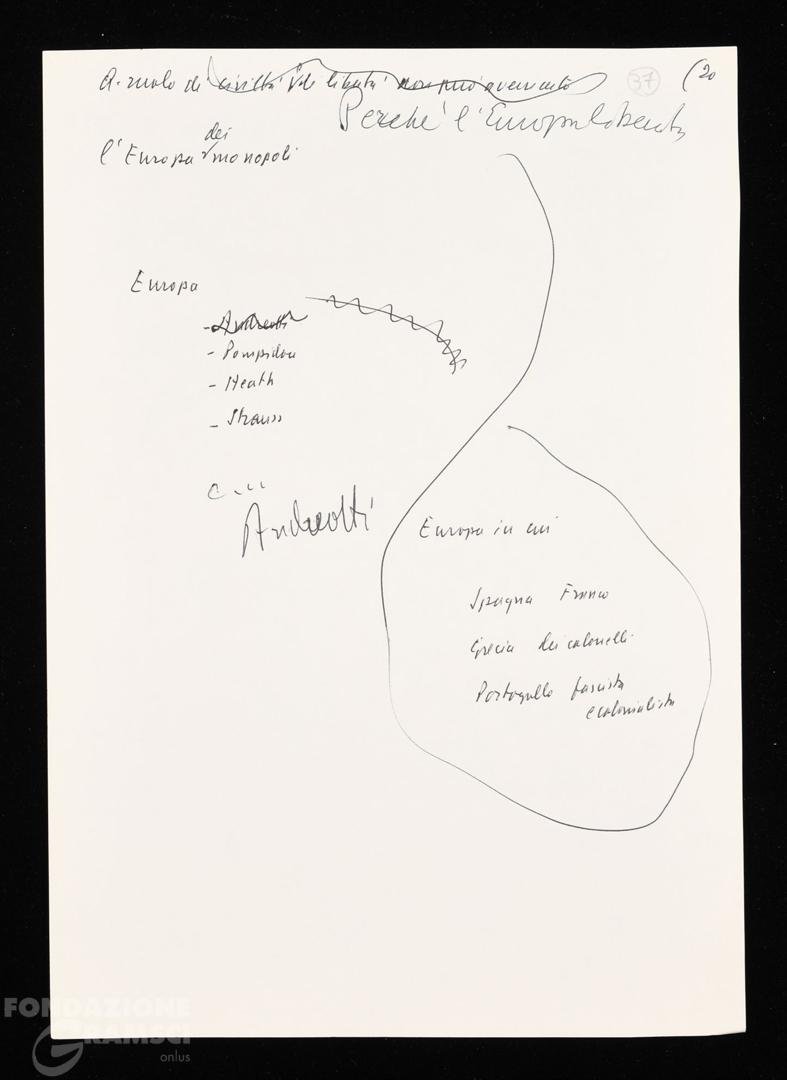 A. ruolo di civiltà e di libertà non può avercelo 37 (20
Perché l'Europa
dei
l'Europa monopoli
Europa
- Andreotti
- Pompidou
- Heath
- Strauss
e...
Andreotti
Europa in cui
Spagna Franco
Grecia dei colonelli
Portogallo fascista
e colonialista
FONDAZIONE
GRAMSCI
onlus